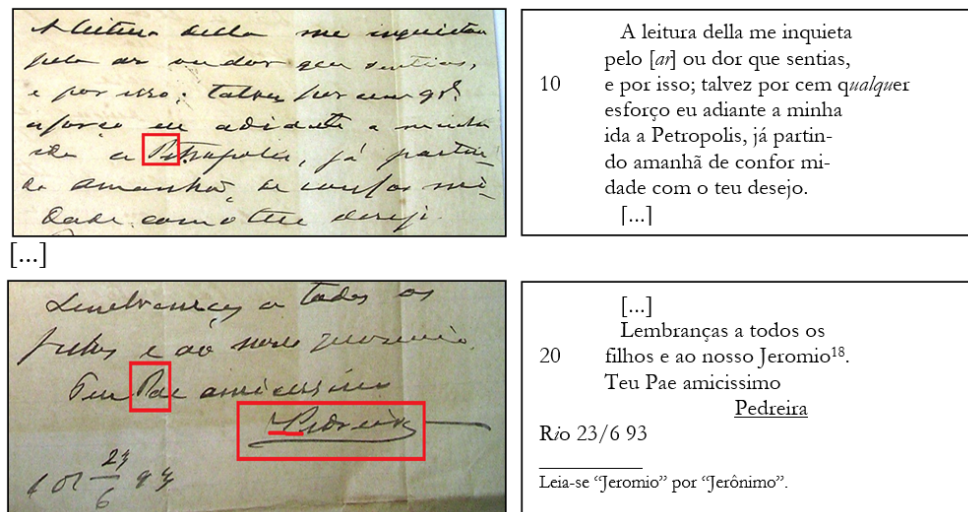 A leitura della me inquieta
pelo ar ou dor que sentias,
e por isso; talvez por cem
esforço eu adiante a minha
ida a Petropolis, já partin-
do amanhã de confor mi-
dade com o teu desejo.
A leitura della me inquieta
pelo [ar] ou dor que sentias,
10 e por isso; talvez por cem qualquer
esforço eu adiante a minha
ida a Petropolis, já partin-
do amanhã de confor mi-
dade com o teu desejo.
[...]
[...]
Lembranças a todos os
filhos e ao nosso Jeromio
Teu Pae amicissimo
Pedreira
23
6 93
[...]
Lembranças a todos os
20 filhos e ao nosso Jeromio¹⁸.
Teu Pae amicissimo
Pedreira
Rio 23/6 93
Leia-se “Jeromio” por “Jerônimo”.